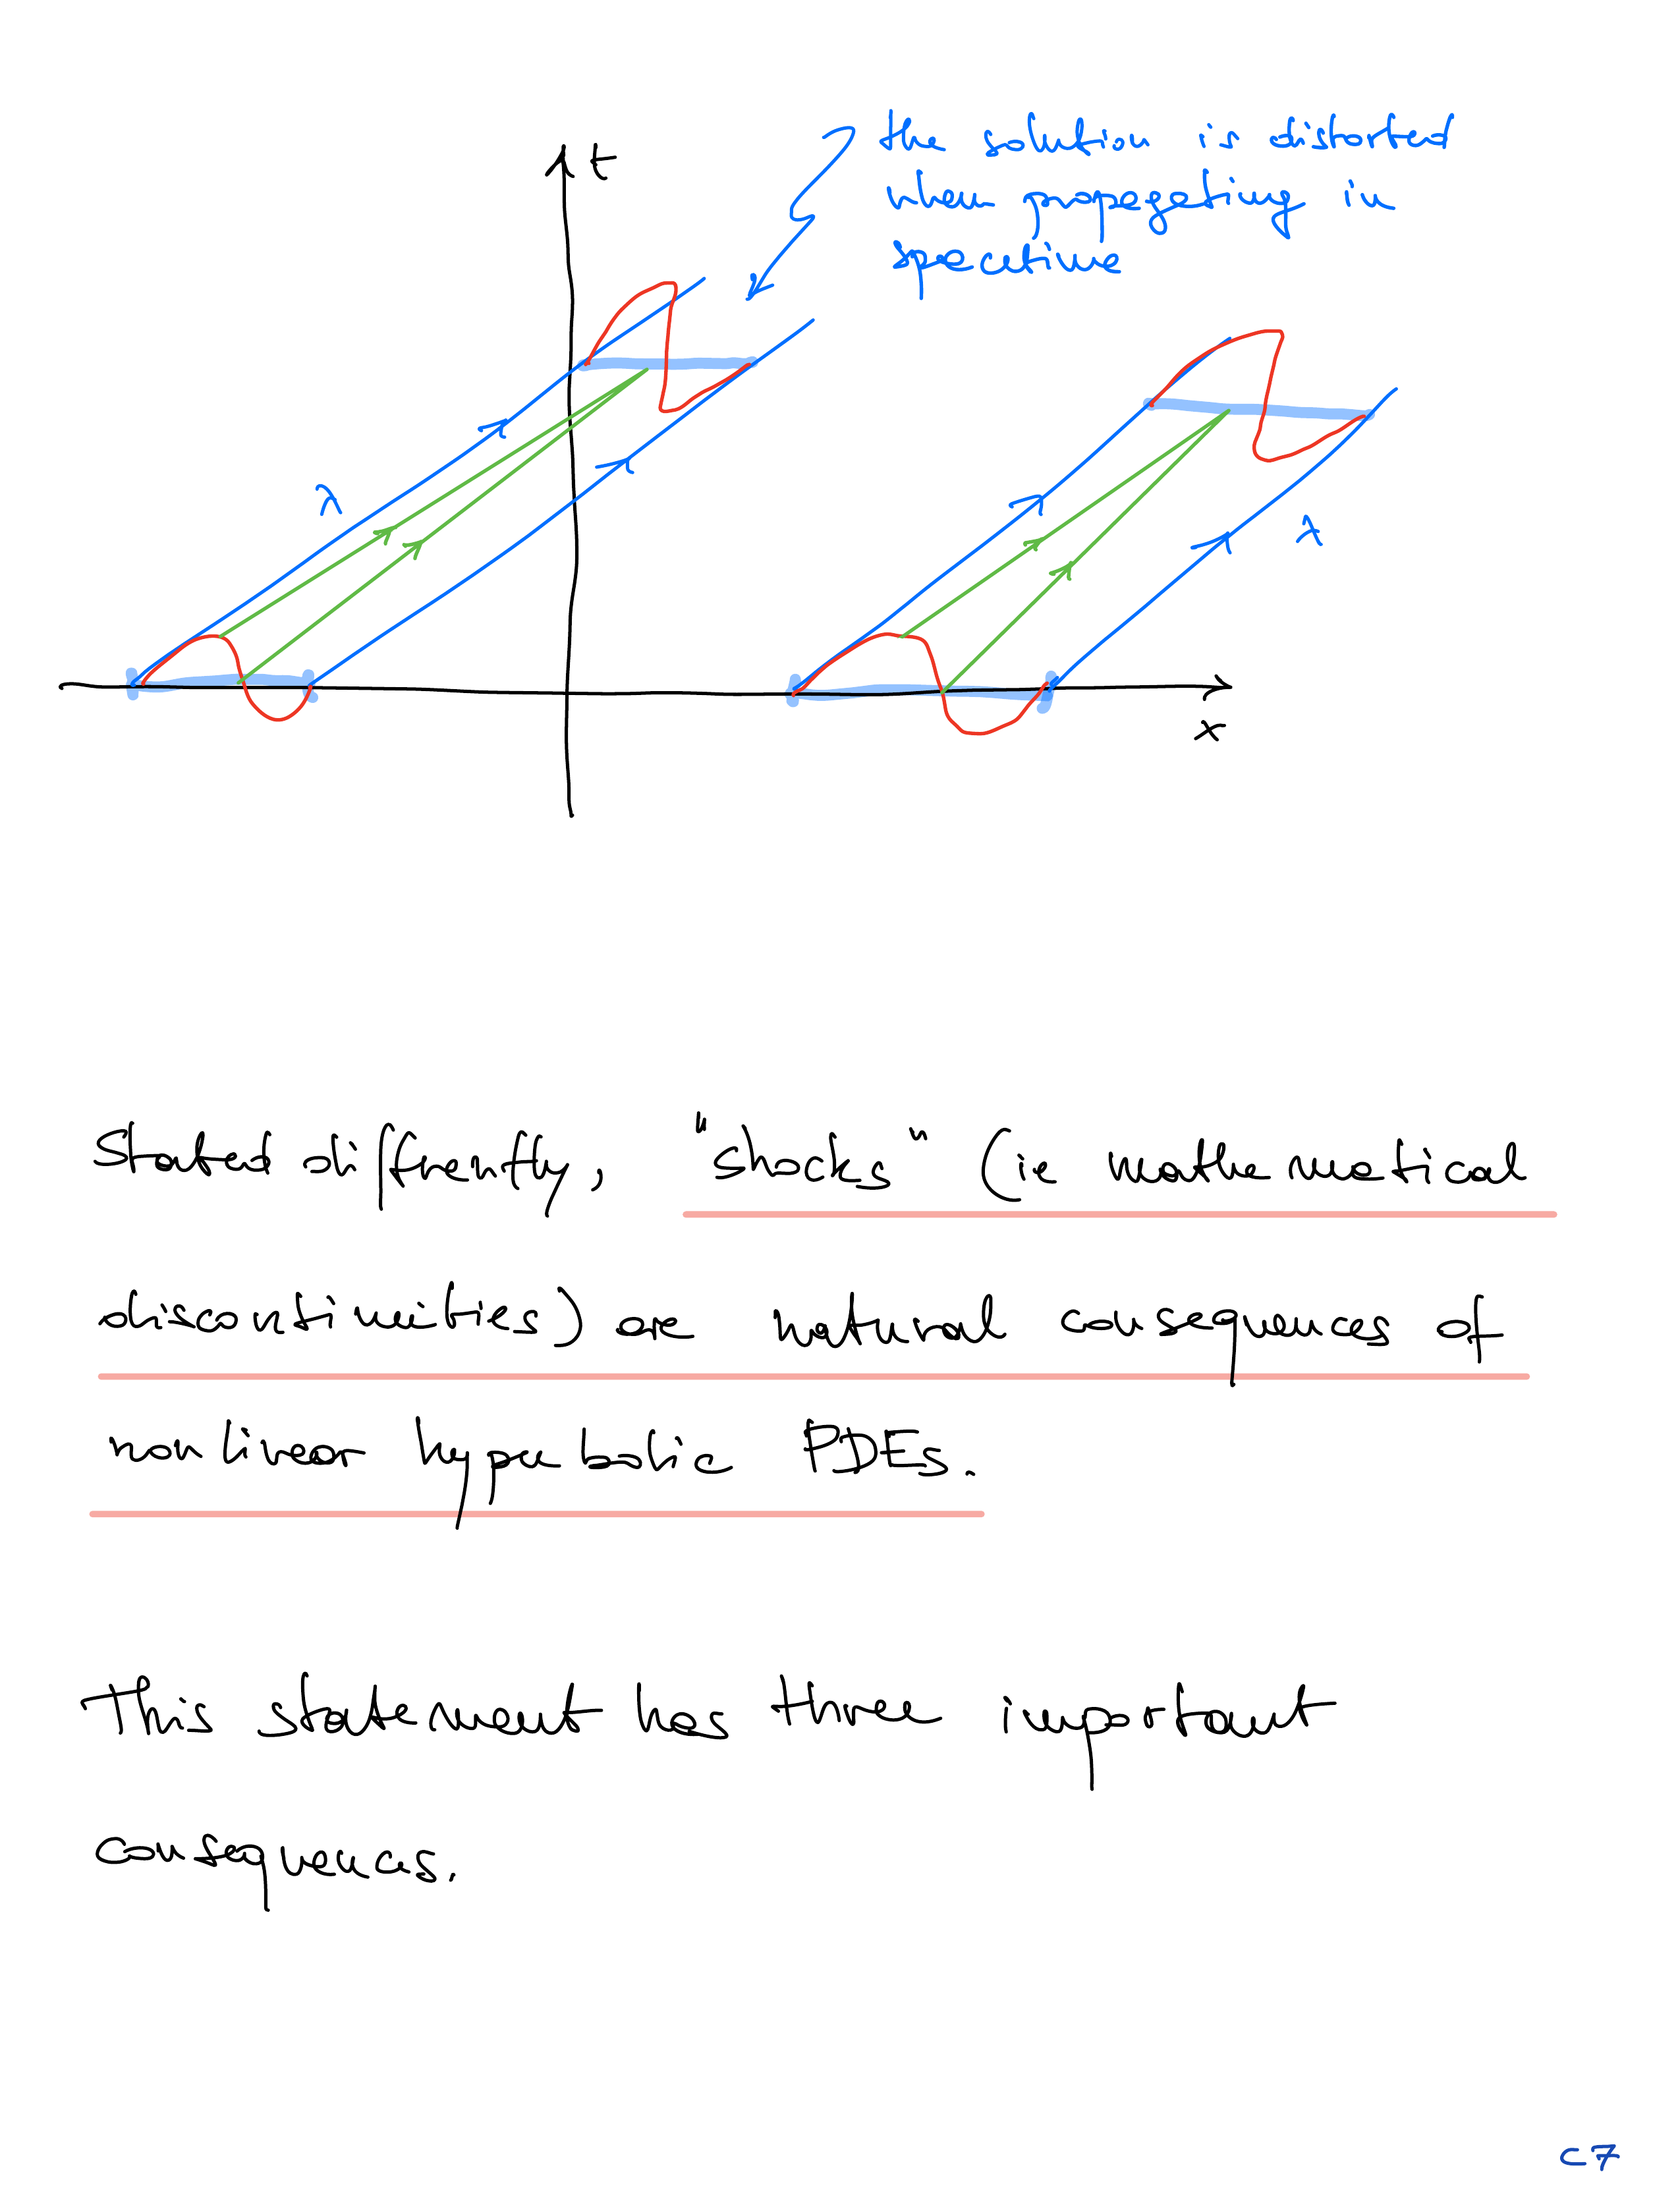 t
the solution is distorted
when propagating in
spacetime
λ
λ
x
Stated differently, "shocks" (ie mathematical
discontinuities) are natural consequences of
nonlinear hyperbolic PDEs.
This statement has three important
consequences.
C7